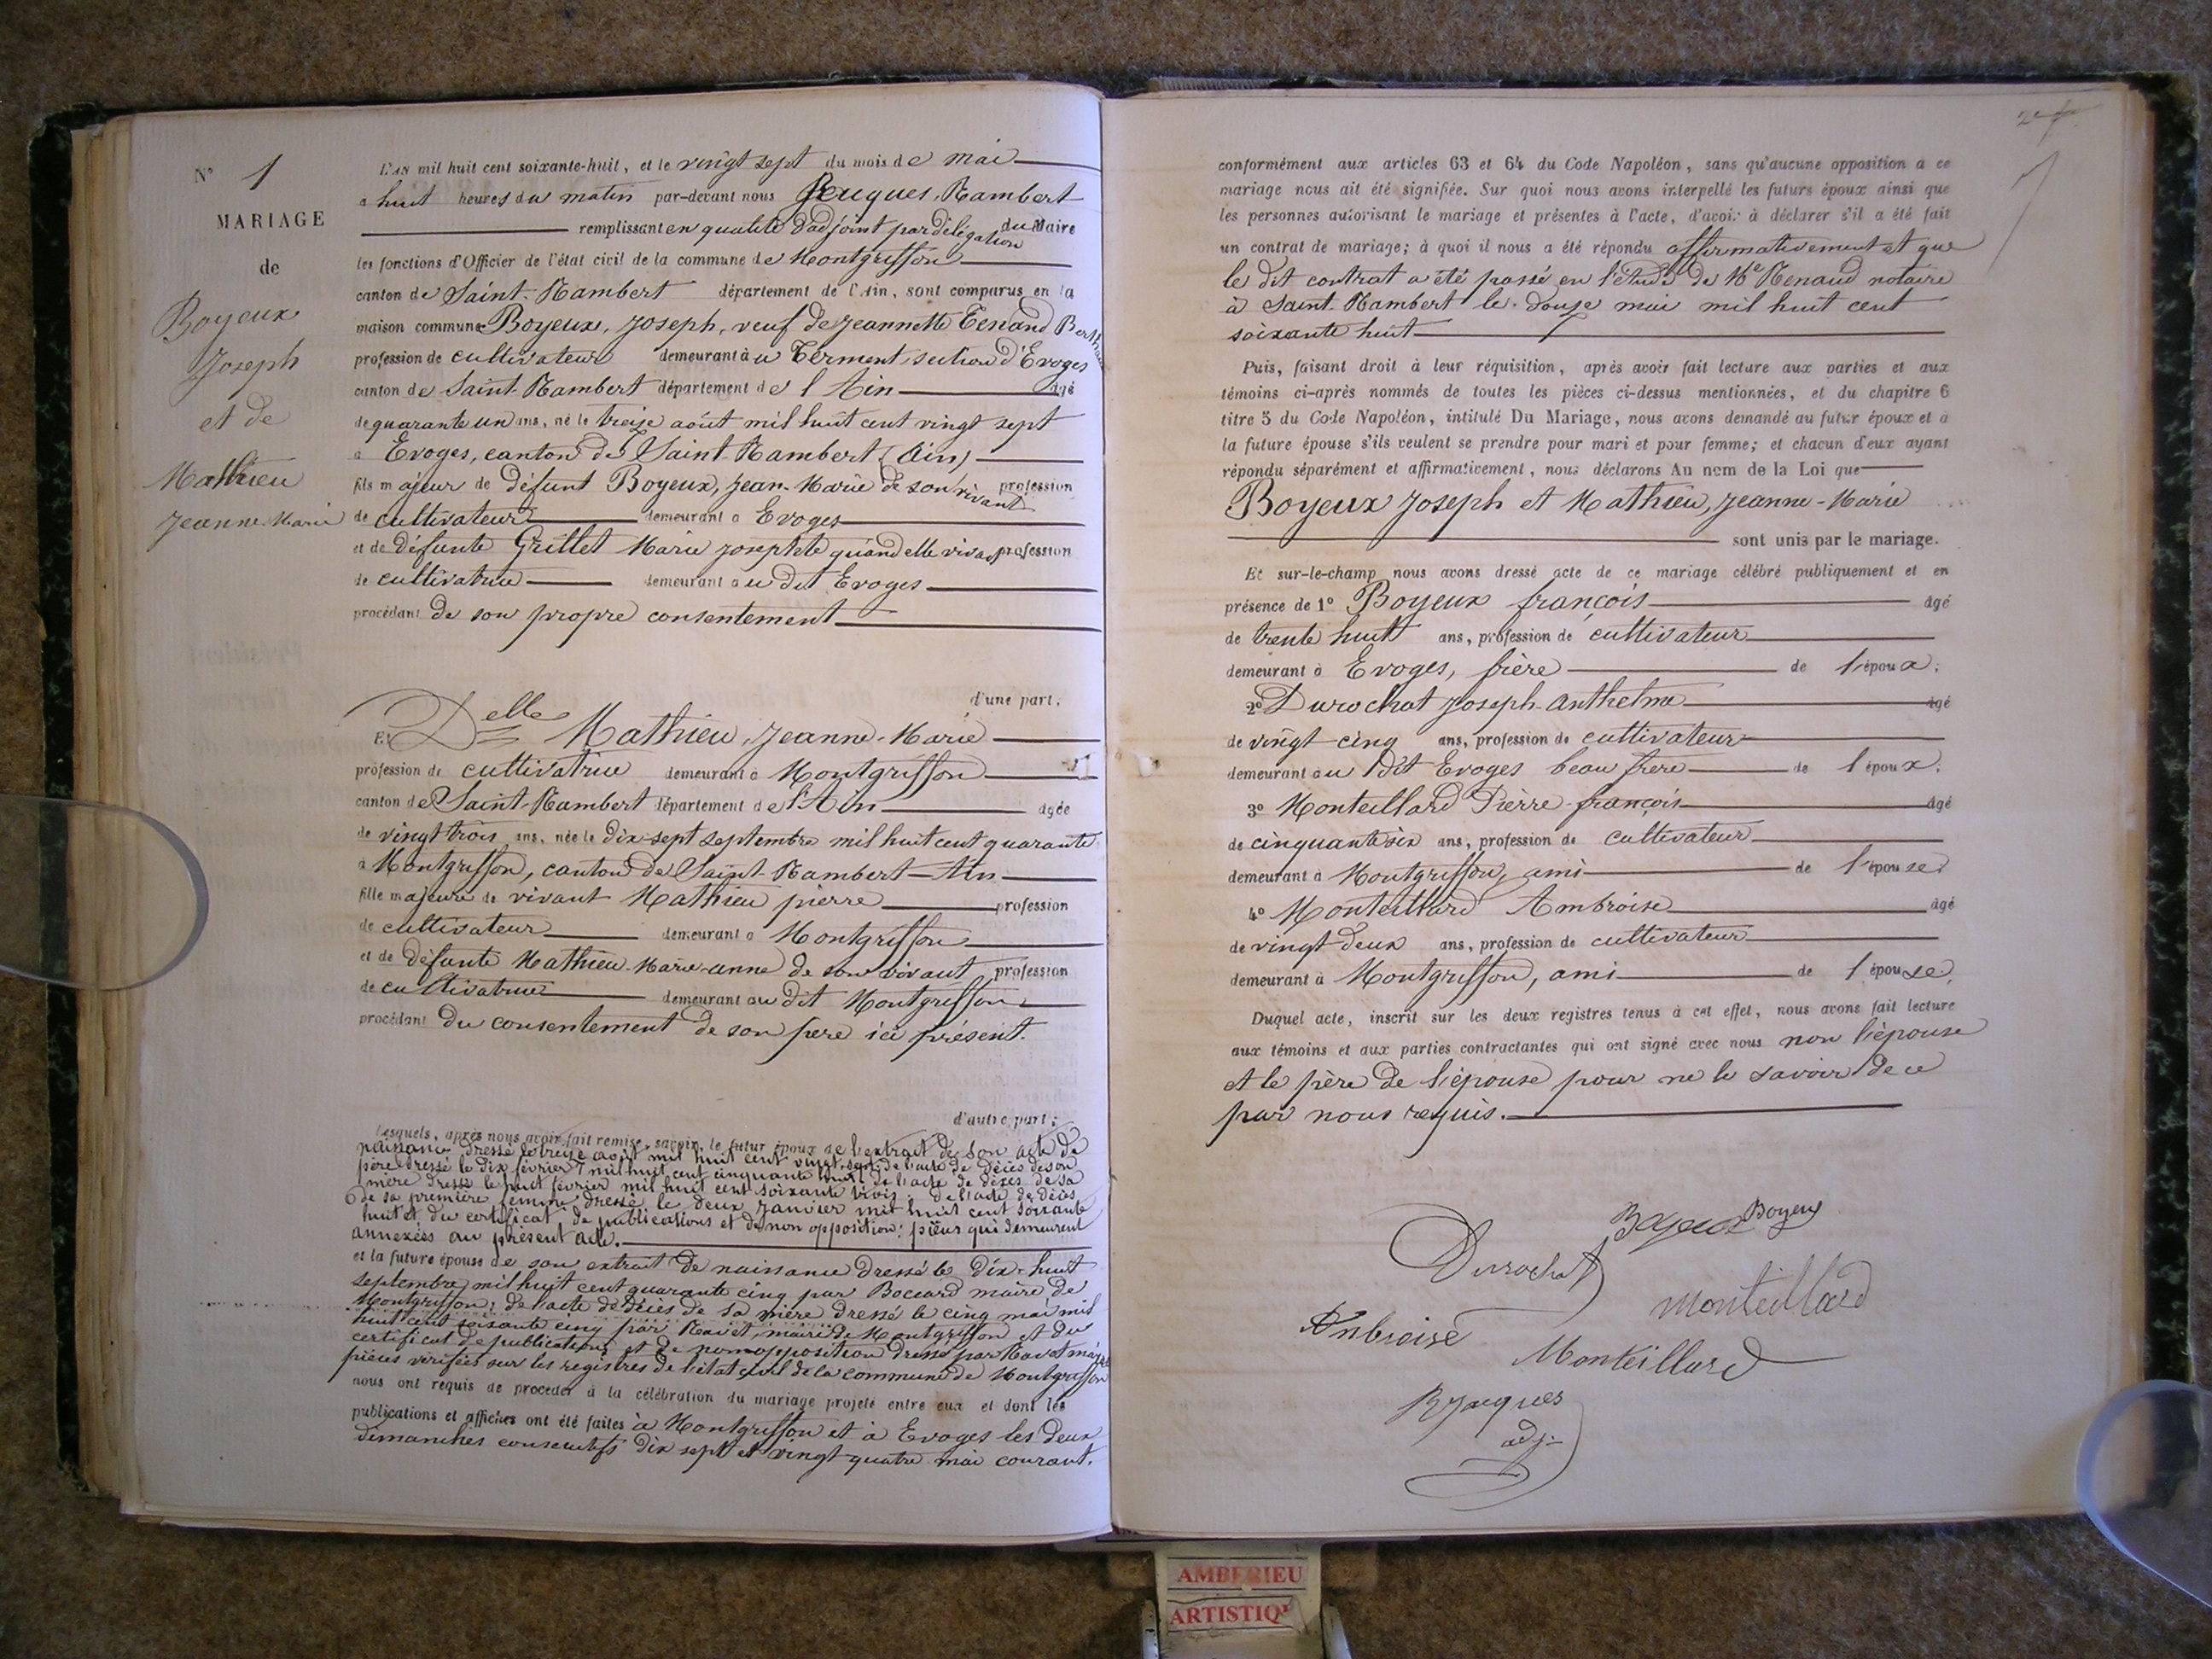 N° 1
MARIAGE
de
Boyeux
Joseph
et de
Mathieu
Jeanne-Marie
L'AN mil huit cent soixante-huit, et le vingt sept du mois de mai
à huit heures du matin par-devant nous Jacques, Rambert
remplissant en qualité d'adjoint par délégation du Maire
les fonctions d'Officier de l'état civil de la commune de Montgriffon
canton de Saint-Rambert département de l'Ain, sont comparus en la
maison commune Boyeux, Joseph, veuf de Jeannette
profession de cultivateur demeurant à u section d'Evoges
canton de Saint-Rambert département de l'Ain âgé
de quarante un ans, né le treize août mil huit cent vingt sept
à Evoges, canton de Saint-Rambert (Ain)
fils majeur de défunt Boyeux, Jean-Marie de son vivant profession
de cultivateur demeurant à Evoges
et de défunte Grillet Marie Josephte quand elle vivait profession
de cultivatrice demeurant au dit Evoges
procédant de son propre consentement
d'une part.
Et Delle Mathieu, Jeanne-Marie
profession de cultivatrice demeurant à Montgriffon
canton de Saint-Rambert département de l'Ain âgée
de vingt trois ans, née le dix-sept septembre mil huit cent quarante
à Montgriffon, canton de Saint-Rambert-Ain
fille majeure de vivant Mathieu pierre profession
de cultivateur demeurant à Montgriffon
et de défunte Mathieu-Marie-anne de son vivant profession
de cultivatrice demeurant au dit Montgriffon
procédant du consentement de son père ici présent.
d'autre part;
Lesquels, après nous avoir fait remise, savoir, le futur époux de l'extrait de son acte de
naissance dressé le treize août mil huit cent vingt-sept; de l'acte de décès de son
père dressé le dix février mil huit cent cinquante de l'acte de décès de sa
mère dressé le huit février mil huit cent soixante trois; de l'acte de décès
de sa première femme dressé le deux Janvier mil huit cent soixante
huit et du certificat de publications et de non opposition: pièces qui demeurent
annexées au présent acte.
et la future épouse de son extrait de naissance dressé le dix-huit
septembre mil huit cent quarante cinq par Boccard maire de
Montgriffon; de l'acte de décès de sa mère dressé le cinq mai mil
huit cent soixante cinq par Ravet, maire de Montgriffon et du
certificat de publications et de non opposition dressé par Ravet maire
pièces vérifiées sur les registres de l'état civil de la commune de Montgriffon
nous ont requis de procéder à la célébration du mariage projeté entre eux et dont les
publications et affiches ont été faites à Montgriffon et à Evoges les deux
dimanches consécutifs dix sept et vingt-quatre mai courant.
conformément aux articles 63 et 64 du Code Napoléon, sans qu'aucune opposition à ce
mariage nous ait été signifiée. Sur quoi nous avons interpellé les futurs époux ainsi que
les personnes autorisant le mariage et présentes à l'acte, d'avoir à déclarer s'il a été fait
un contrat de mariage; à quoi il nous a été répondu affirmativement et que
le dit contrat a été passé en l'étude de Me Renaud notaire
à Saint-Rambert le douze mai mil huit cent
soixante huit
Puis, faisant droit à leur réquisition, après avoir fait lecture aux parties et aux
témoins ci-après nommés de toutes les pièces ci-dessus mentionnées, et du chapitre 6
titre 5 du Code Napoléon, intitulé Du Mariage, nous avons demandé au futur époux et à
la future épouse s'ils veulent se prendre pour mari et pour femme; et chacun d'eux ayant
répondu séparément et affirmativement, nous déclarons Au nom de la Loi que
Boyeux Joseph et Mathieu, Jeanne-Marie
sont unis par le mariage.
Et sur-le-champ nous avons dressé acte de ce mariage célébré publiquement et en
présence de 1° Boyeux françois âgé
de trente huit ans, profession de cultivateur
demeurant à Evoges, frère de l'époux.
2° Durochat Joseph-Anthelme âgé
de vingt-cinq ans, profession de cultivateur
demeurant au dit Evoges beau frère de l'époux.
3° Monteillard Pierre-françois âgé
de cinquante six ans, profession de cultivateur
demeurant à Montgriffon, ami de l'épouse
4° Monteillard Ambroise âgé
de vingt-deux ans, profession de cultivateur
demeurant à Montgriffon, ami de l'épouse,
Duquel acte, inscrit sur les deux registres tenus à cet effet, nous avons fait lecture
aux témoins et aux parties contractantes qui ont signé avec nous non l'épouse
et le père de l'épouse pour ne le savoir de ce
par nous requis.
Boyeux Boyeux
Durochat
monteillard
Ambroise
Monteillard
R Jacques
adj.
AMBERIEU
ARTISTIQ